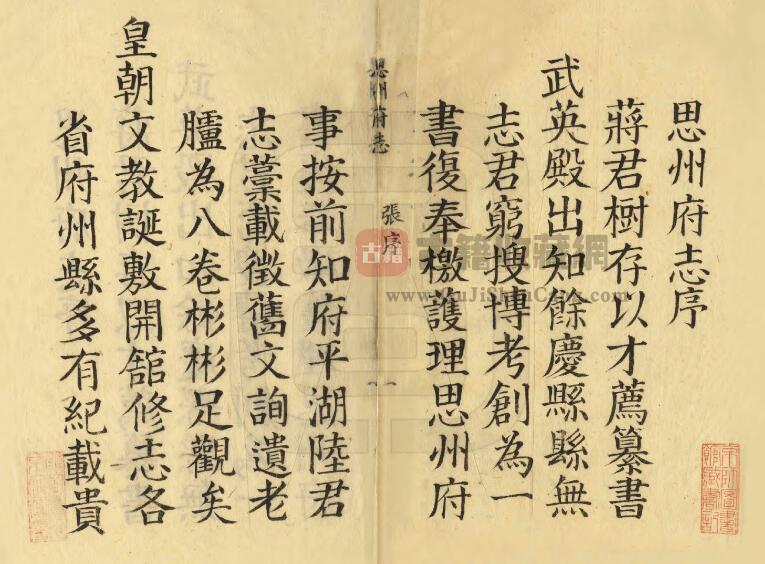 思州府志序
蔣君樹存以才薦纂書
武英殿出知餘慶縣縣無
志君窮搜博考創為一
書復奉檄護理思州府
思州府志
張序
一
事按前知府平湖陸君
志藁載徵舊文詢遺老
臚為八卷彬彬足觀矣
皇朝文教誕敷開館修志各
省府州縣多有紀載貴
古籍
古籍收藏網
www.GuJiShuCang.com